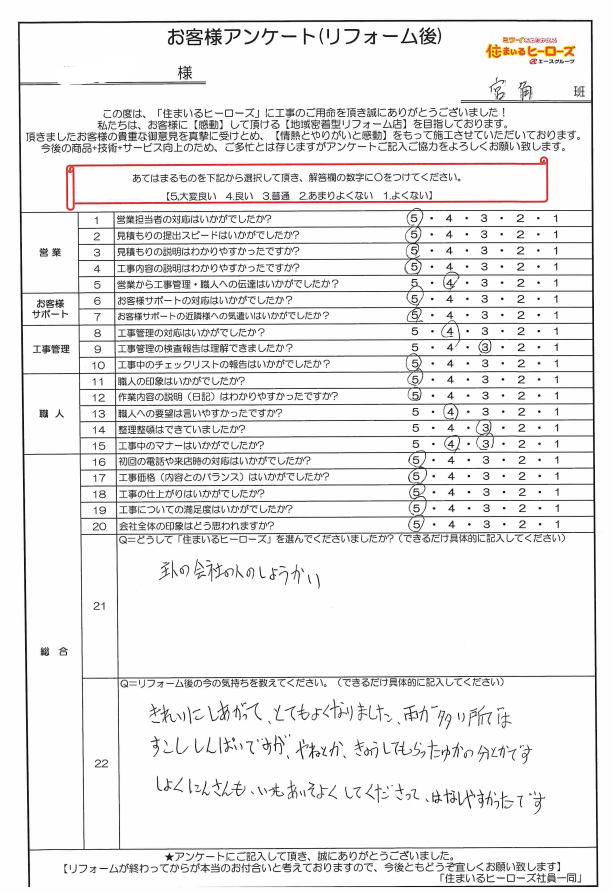 お客様アンケート(リフォーム後)
住まいるヒーローズ
エースグループ
様
班
この度は、「住まいるヒーローズ」に工事のご用命を頂き誠にありがとうございました！
私たちは、お客様に【感動】して頂ける【地域密着型リフォーム店】を目指しております。
頂きましたお客様の貴重な御意見を真摯に受けとめ、【情熱とやりがいと感動】をもって施工させていただいております。
今後の商品+技術+サービス向上のため、ご多忙とは存じますがアンケートご記入ご協力をよろしくお願い致します。
あてはまるものを下記から選択して頂き、解答欄の数字に○をつけてください。
【5.大変良い　4.良い　3.普通　2.あまりよくない　1.よくない】
営業
1 営業担当者の対応はいかがでしたか？ 5・4・3・2・1
2 見積もりの提出スピードはいかがでしたか？ 5・4・3・2・1
3 見積もりの説明はわかりやすかったですか？ 5・4・3・2・1
4 工事内容の説明はわかりやすかったですか？ 5・4・3・2・1
5 営業から工事管理・職人への伝達はいかがでしたか？ 5・4・3・2・1
お客様
サポート
6 お客様サポートの対応はいかがでしたか？ 5・4・3・2・1
7 お客様サポートの近隣様への気遣いはいかがでしたか？ 5・4・3・2・1
工事管理
8 工事管理の対応はいかがでしたか？ 5・4・3・2・1
9 工事管理の検査報告は理解できましたか？ 5・4・3・2・1
10 工事中のチェックリストの報告はいかがでしたか？ 5・4・3・2・1
職人
11 職人の印象はいかがでしたか？ 5・4・3・2・1
12 作業内容の説明（日記）はわかりやすかったですか？ 5・4・3・2・1
13 職人への要望は言いやすかったですか？ 5・4・3・2・1
14 整理整頓はできていましたか？ 5・4・3・2・1
15 工事中のマナーはいかがでしたか？ 5・4・3・2・1
総合
16 初回の電話や来店時の対応はいかがでしたか？ 5・4・3・2・1
17 工事価格（内容とのバランス）はいかがでしたか？ 5・4・3・2・1
18 工事の仕上がりはいかがでしたか？ 5・4・3・2・1
19 工事についての満足度はいかがでしたか？ 5・4・3・2・1
20 会社全体の印象はどう思われますか？ 5・4・3・2・1
21
Q=どうして「住まいるヒーローズ」を選んでくださいましたか？（できるだけ具体的に記入してください）
の会社の人のしょうかい
22
Q=リフォーム後の今の気持ちを教えてください。（できるだけ具体的に記入してください）
きれいにしあがって、とてもよくなりました、雨が多い所では
すこししんぱいですが、やねとか、きょうしてもらったゆかの分とかです
しょくにんさんも、いつもあいそよくしてくださって、はなしやすかったです
★アンケートにご記入して頂き、誠にありがとうございました。
【リフォームが終わってからが本当のお付合いと考えておりますので、今後ともどうぞ宜しくお願い致します】
「住まいるヒーローズ社員一同」